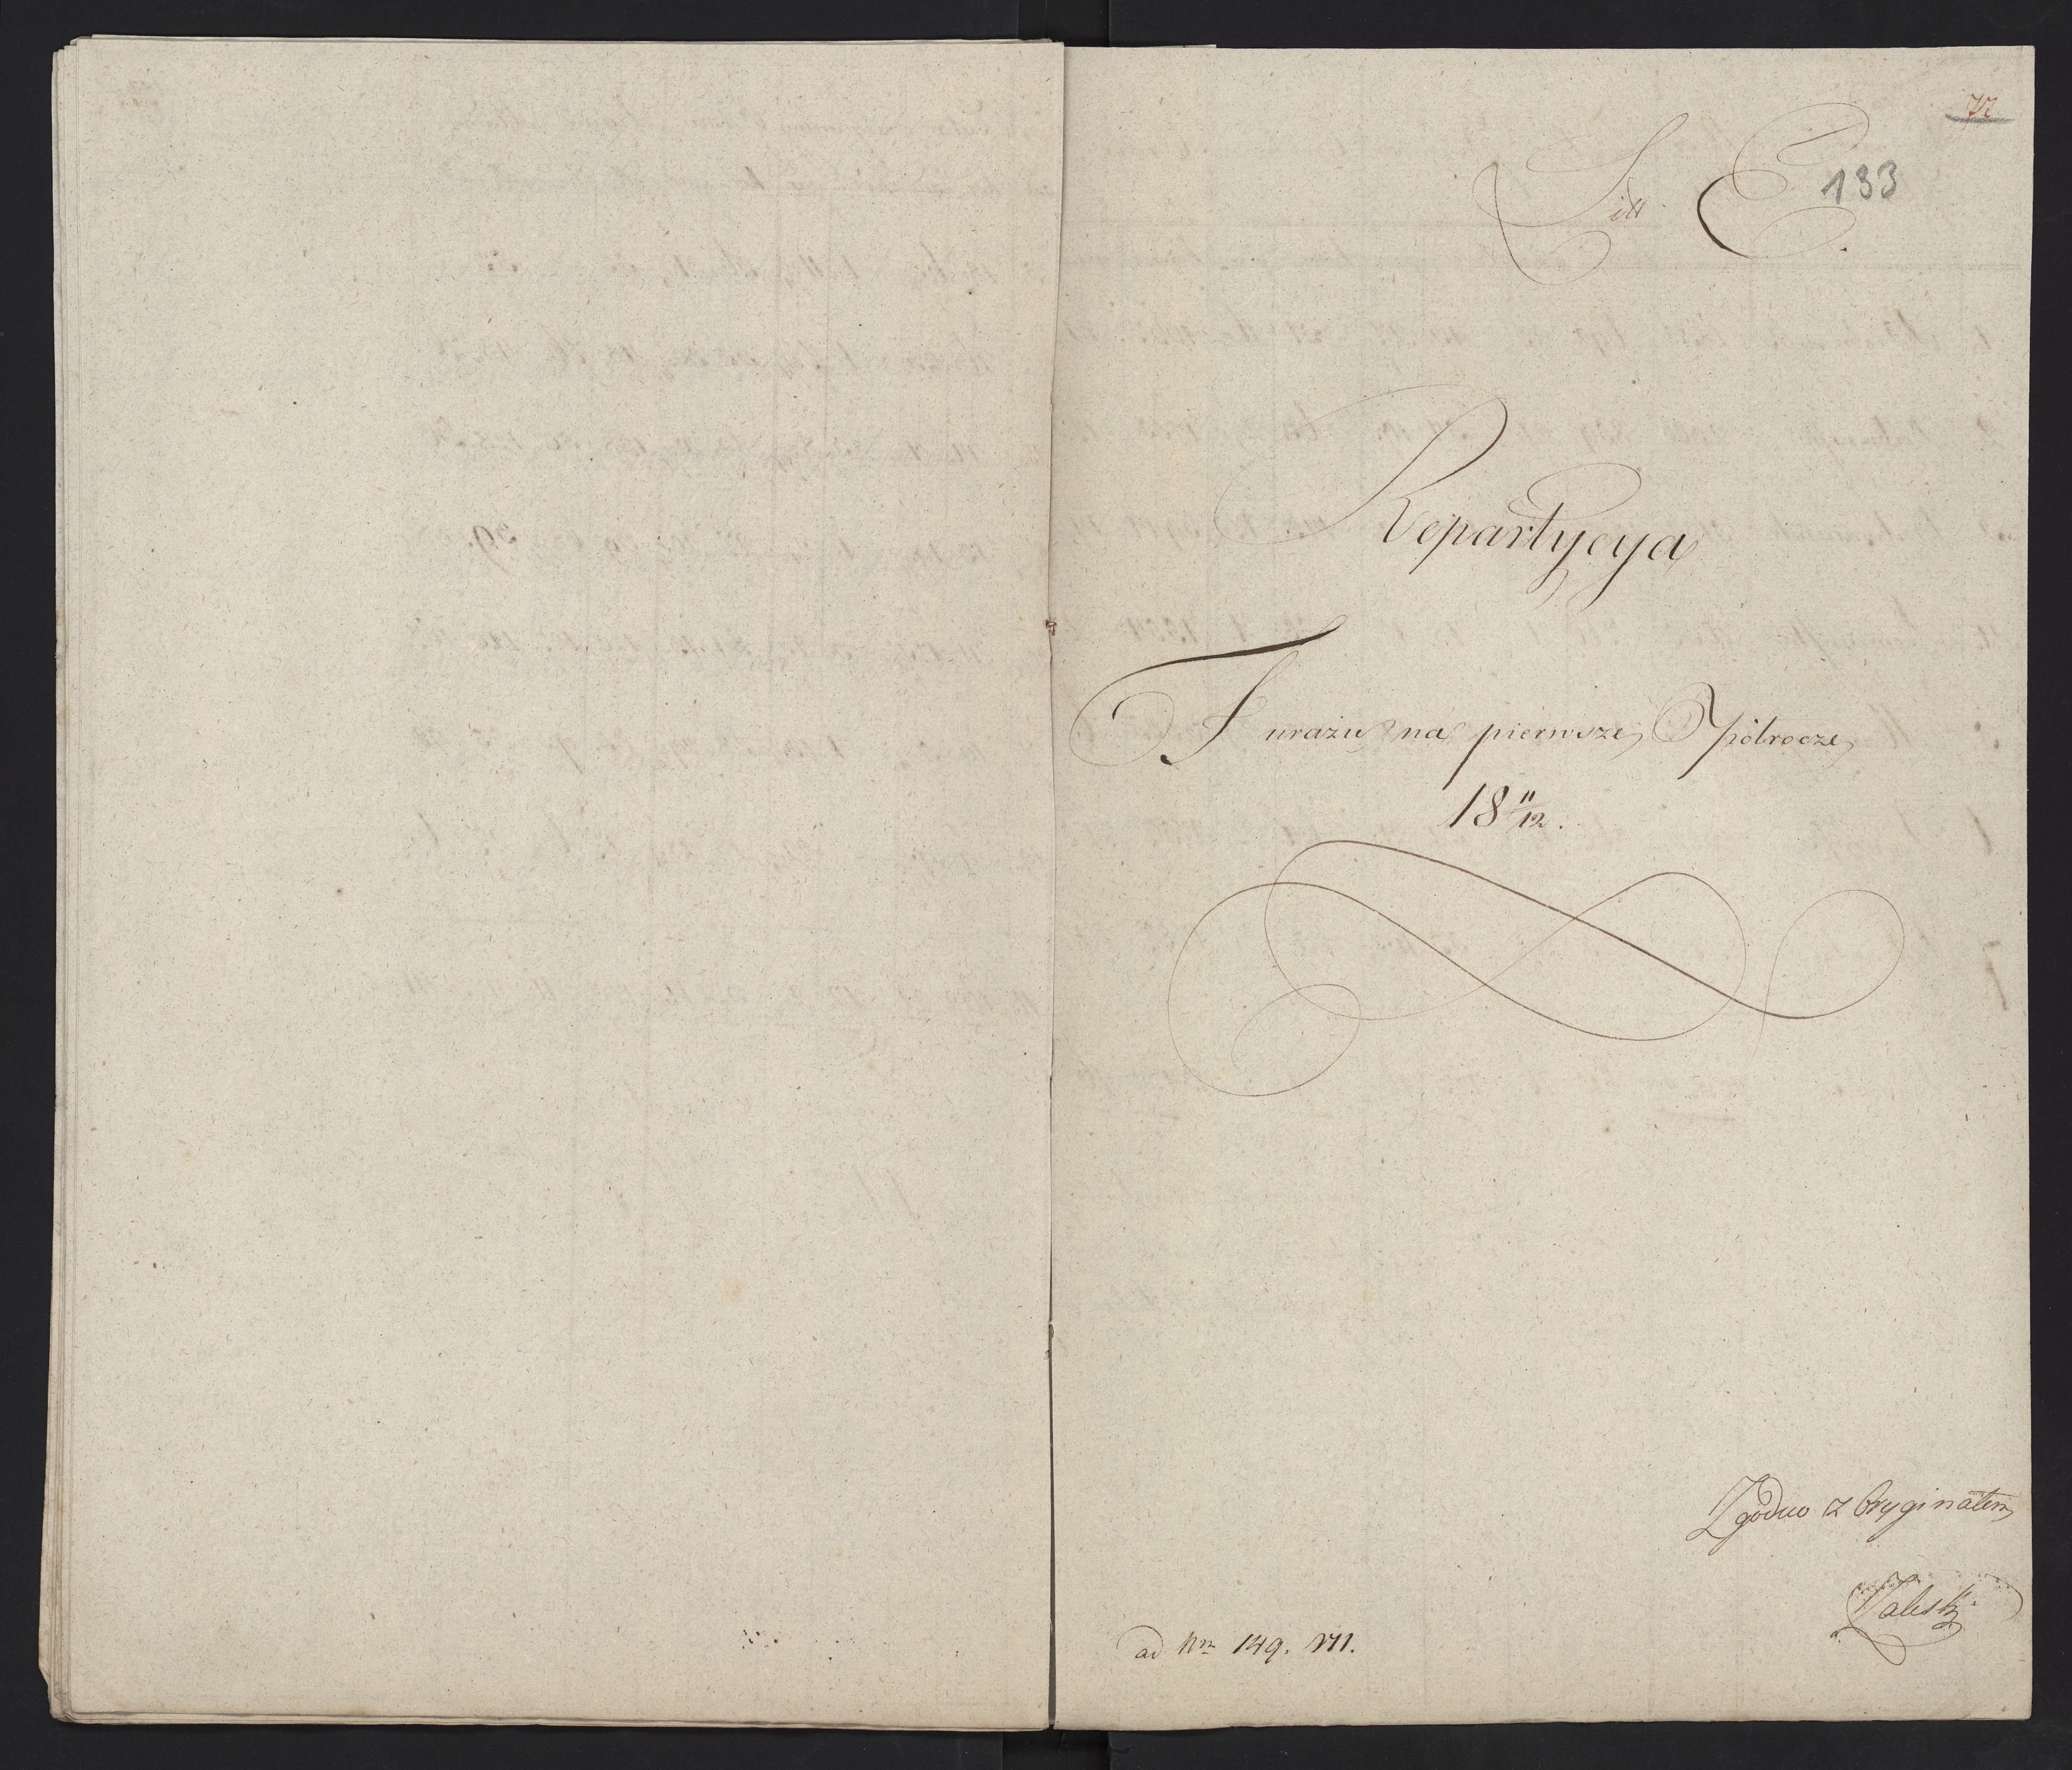 72
133
Litt. E.
Repartycya
Furażu na pierwsze półrocze
18 11/12.
Zgodno z Oryginałem
Zaleski
ad Nrm 149. VII.